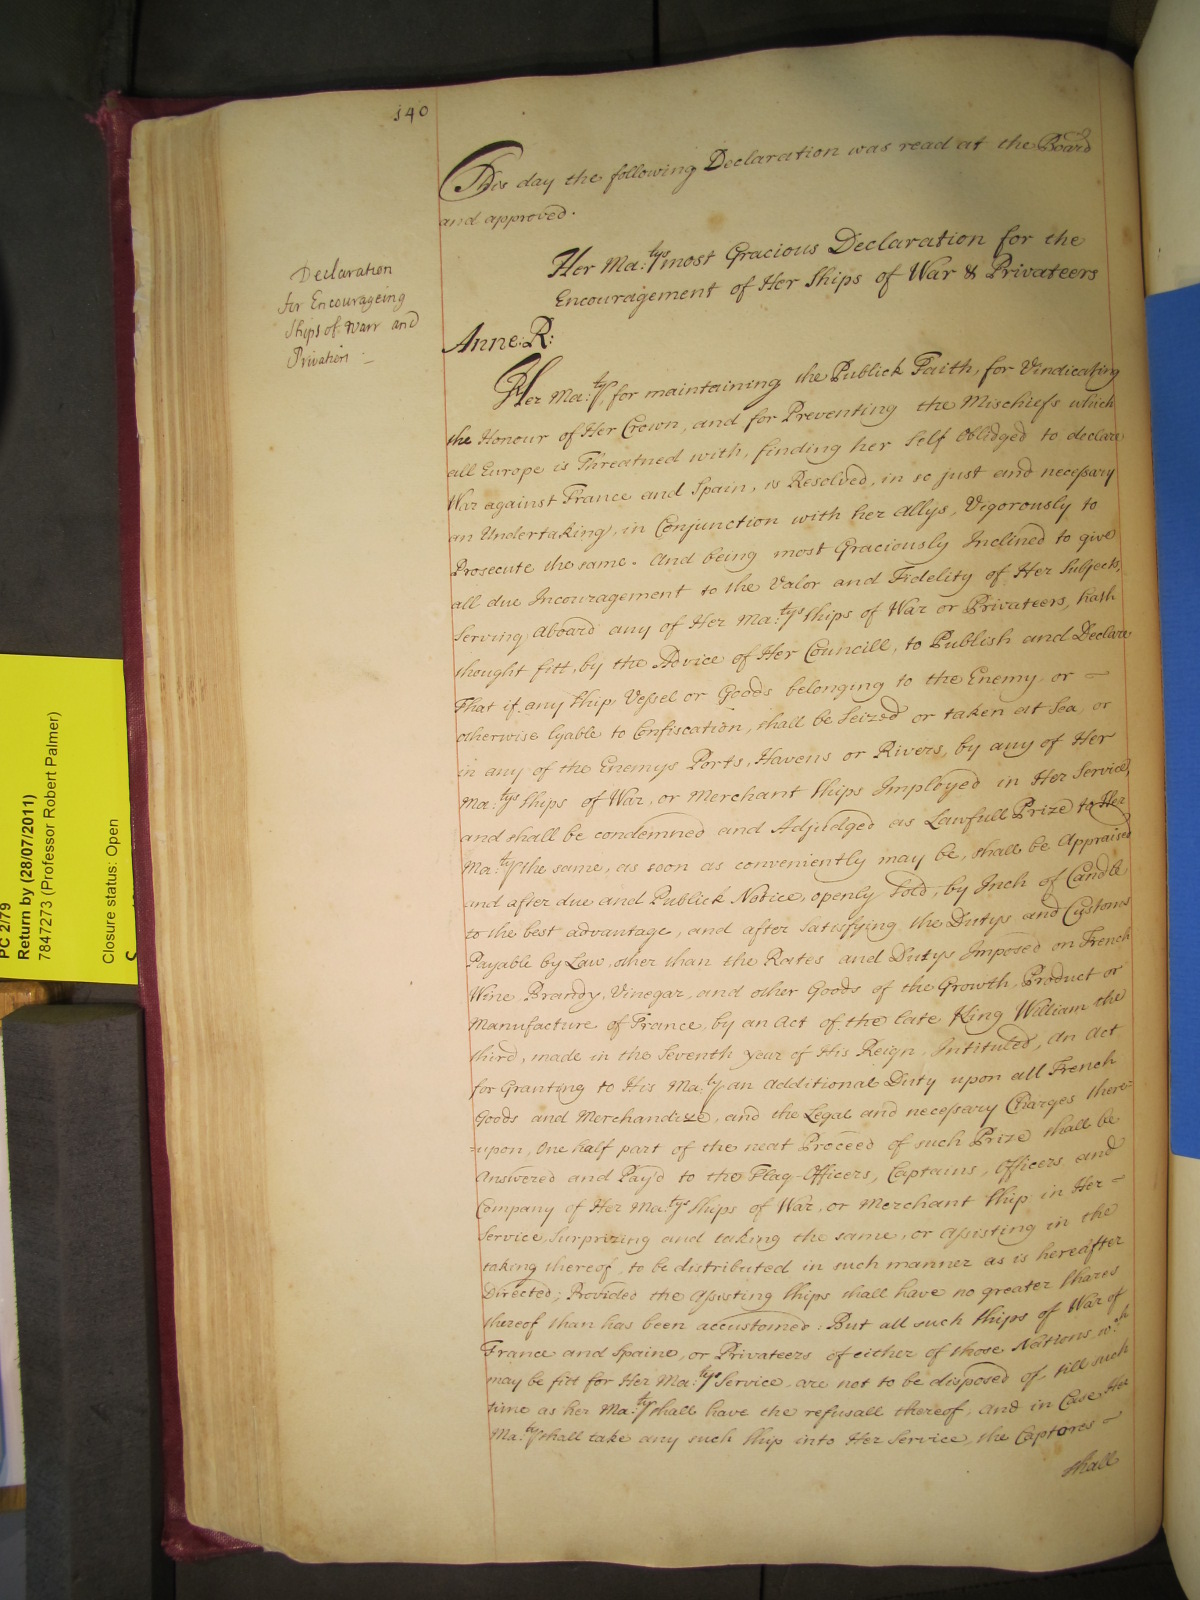 140
This day the following Declaration was read at the Board
and approved.
Her Ma:tys most Gracious Declaration for the
Encouragement of Her Ships of War & Privateers
Declaration
for Encourageing
Ships of Warr and
Anne: R:
Her Ma:ty for maintaining the Publick Faith, for Vindicating
the Honour of Her Crown, and for Preventing the Mischiefs which
all Europe is Threatned with, finding her Self Oblidged to declare
War against France and Spain, is Resolved, in so just and necessary
an Undertaking, in Conjunction with her Allys, Vigorously to
Prosecute the same. And being most Graciously Inclined to give
all due Incouragement to the Valor and Fidelity of Her Subjects,
Serving aboard any of Her Ma:tys Ships of War or Privateers, hath
thought fitt, by the Advice of Her Councill, to Publish and Declare
That if any Ship Vessel or Goods belonging to the Enemy or
otherwise lyable to Confiscation, shall be Seized or taken at Sea, or
in any of the Enemys Ports, Havens or Rivers, by any of Her
Ma:tys Ships of War, or Merchant Ships Imployed in Her Service,
and shall be condemned and Adjudged as Lawfull Prize to Her
Ma:ty the same, as soon as conveniently may be, shall be Appraised
and after due and Publick Notice, openly Sold, by Inch of Candle
to the best advantage, and after satisfying the Dutys and Customs
Payable by Law, other than the Rates and Dutys Imposed on French
Wine, Brandy, Vinegar, and other Goods of the Growth, Product or
Manufacture of France, by an Act of the late King William the
third, made in the Seventh year of His Reign, Intituled, An Act
for Granting to His Ma:ty an additional Duty upon all French
Goods and Merchandize, and the Legal and necessary Charges there=
=upon, One half part of the neat Proceed of such Prize shall be
Answered and Pay'd to the Flag-Officers, Captains, Officers and
Company of Her Ma:tys Ships of War, or Merchant Ship in Her
Service, Surprizing and taking the same, or assisting in the
taking thereof, to be distributed in such manner as is hereafter
Directed; Provided the assisting Ships shall have no greater shares
thereof than has been accustomed: But all such Ships of War of
France and Spaine, or Privateers of either of those Nations wch
may be fitt for Her Ma:tys Service, are not to be disposed of, till such
time as her Ma:ty shall have the refusall thereof; and in Case Her
Ma:ty shall take any such Ship into Her Service, the Captores
shall
PC 2/79
Return by (28/07/2011)
7847273 (Professor Robert Palmer)
Closure status: Open